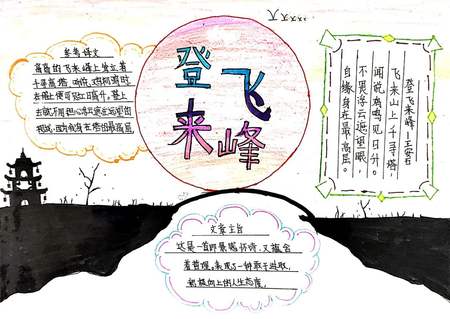 登飞
来峰
参考译文
高高的飞来峰上耸立着
千寻高塔,听说,鸡鸣时
在塔上便可见红日高升。登上
就不用担心浮云遮远望的
视线,因为我身在塔的最高层
登飞来峰 王安石
飞来山上千寻塔,
闻说鸡鸣见日升。
不畏浮云遮望眼,
自缘身在最高层。
文章主旨
这是一首即景怀诗,又蕴含
着哲理。表现了一种敢于进取,
积极向上的人生态度。